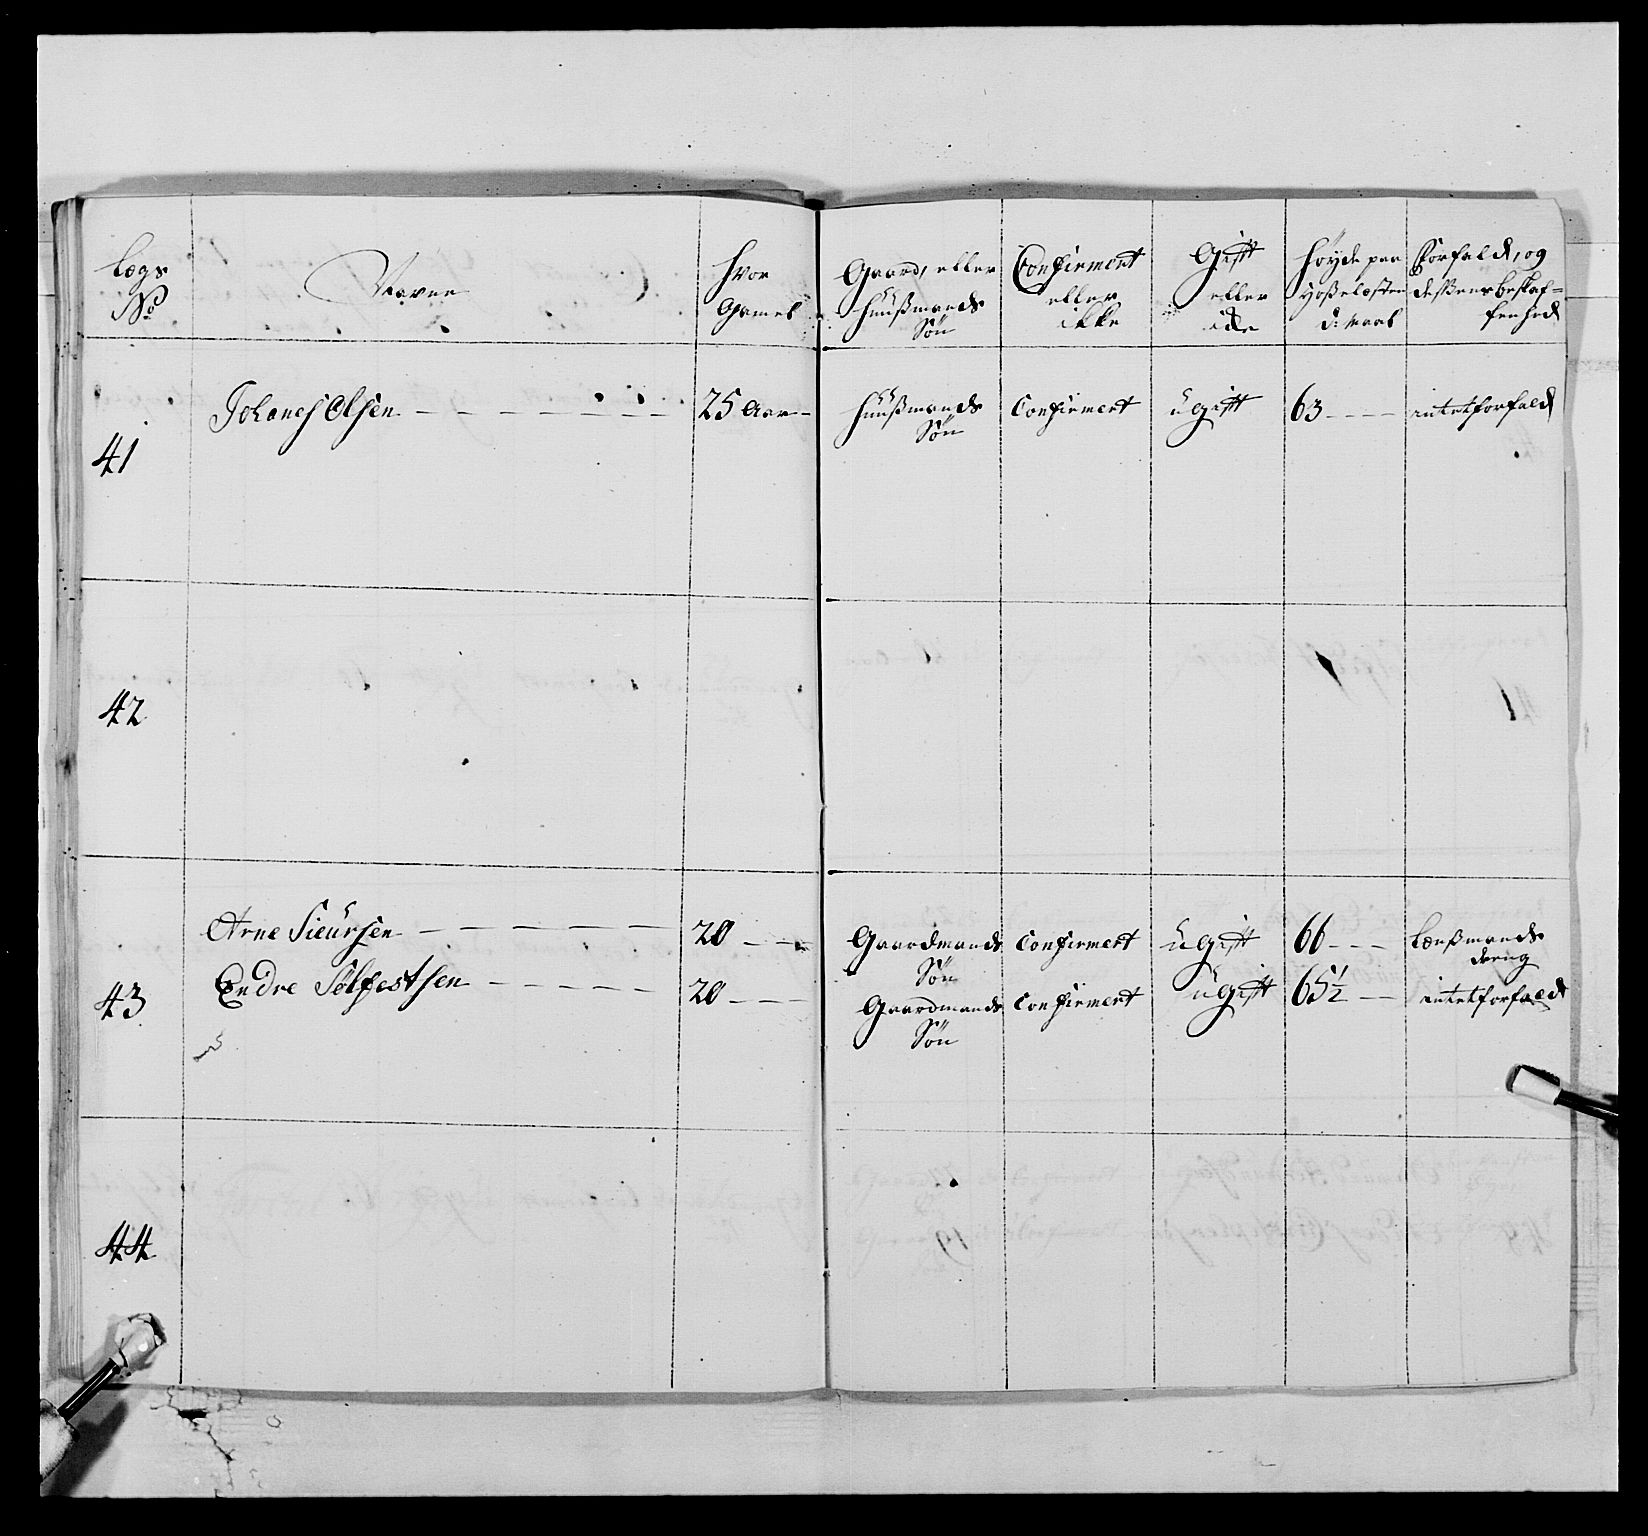 Lægs No
Navne
hvor Gamel
Gaard, eller Huusmands Søn
Confirmert eller ikke
Gift eller icke
Høyde paa Hosselæsten d: Maal
Forfald, og desßens beskaffenhed
41
Johanes Olsen
25 Aar
Huusmands Søn
Confirmert
ugift
63
intet forfald
42
43
Arne Siursen
20
Gaardmands Søn
Confirmert
ugift
66
Lensmands dreng
Endre Sølfestsen
20
Gaardmands Søn
Confirmert
ugift
65½
intet forfald
44